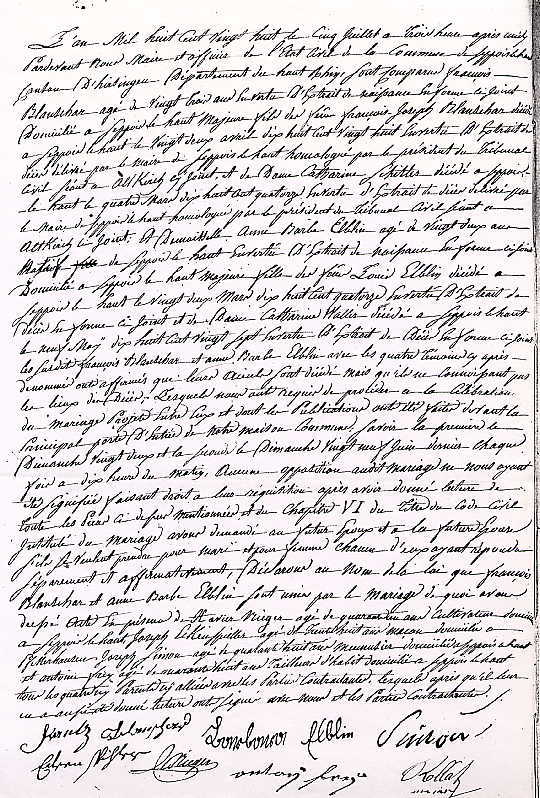 L'an Mil huit Cent vingt huit le Cinq Juillet a Trois heure après midi
Pardevant Nous Maire et officier de l'Etat Civil de la Commune de Seppois le haut
Canton D'hirsingen, Département du haut Rhin, sont Comparus francois
Blanschar agé de Vingt Trois ans En vertu D'Extrait de naissance En forme ci Joint
Domicilié a Seppois le haut Majeure fils de feu francois Joseph Blanschar décédé
a Seppois le haut le Vingt deux avril dix huit Cent Vingt huit En vertu D'Extrait de
décès délivré par le Maire de Seppois le haut homologué par le président du Tribunal
Civil séant a Altkirch ci Joint et de Dame Catharine décédé a Seppois
le haut le quatre Mars dix huit Cent quatorze En vertu d'Extrait de décès délivré par
le Maire de Seppois le haut homologué par le président du Tribunal Civil séant a
Altkirch ci Joint. Et Demoiselle Anne Barbe Elblin agé de Vingt deux ans
de Seppois le haut En vertu D'Extrait de naissance En forme ci Joint
Domicilié a Seppois le haut Majeure fille de feu Louis Elblin décédé a
Seppois le haut le Vingt deux Mars dix huit Cent quatorze En vertu D'Extrait de
décès En forme ci Joint et de Dame Catharine Wallis décédé a Seppois le haut
le neuf May dix huit Cent Vingt Sept En vertu D'Extrait de décès En forme ci Joint
les susdit francois Blanschar et anne Barbe Elblin avec les quatre Temoins ci après
dénommé ont affirmés que leurs Aieuls sont décédé mais qu'ils ne Connoissent pas
les lieux des décès. Lesquels nous ont requis de procéder a la Célébration
du mariage Projeté Entre Eux et dont les Publications ont été faites devant la
Principal porte D'Entrée de notre maison Commune, Savoir la premiere le
Dimanche Vingt deux et la seconde le Dimanche Vingt neuf Juin dernier Chaque
fois a dix heure du matin. Aucune opposition audit mariage ne nous ayant
été signifiée faisant droit a leur réquisition après avoir donné lecture de
toute les Pièce Ci dessus mentionnées et du Chapitre VI du titre du Code Civil
Intitulé du Mariage avons demandé au futur Epoux et a la future Epouse
S'ils Se Veulent prendre pour mari et pour femme Chacun d'eux ayant répondu
séparement et affirmativement, Déclarons au Nom de la loi que francois
Blanschar et anne Barbe Elblin sont unis par le Mariage de quoi avons
dressé Acte En présence de Xavier agé de quarante ans Cultivateur domicilié
a Seppois le haut Joseph agé de trente huit ans macon domicilié a
Joseph Simon agé de quarante huit ans meunier domicilié a Seppois le haut
et antoine frey agé de quarante huit ans Tailleur d'habit domicilié a Seppois le haut
tous les quatre Parents et alliés avec les Partie Contractante. Lesquels après qu'il leur
en a aussi été donné lecture ont Signé avec nous et les Partie Contractante.
Elblin Simon
antoni frey